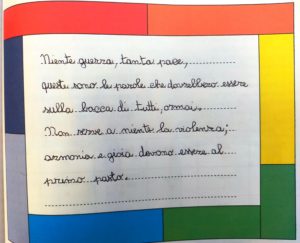 Niente guerra, tanta pace,
queste sono le parole che dovrebbero essere
sulla bocca di tutti, ormai.
Non serve a niente la violenza;
armonia e gioia devono essere al
primo posto.